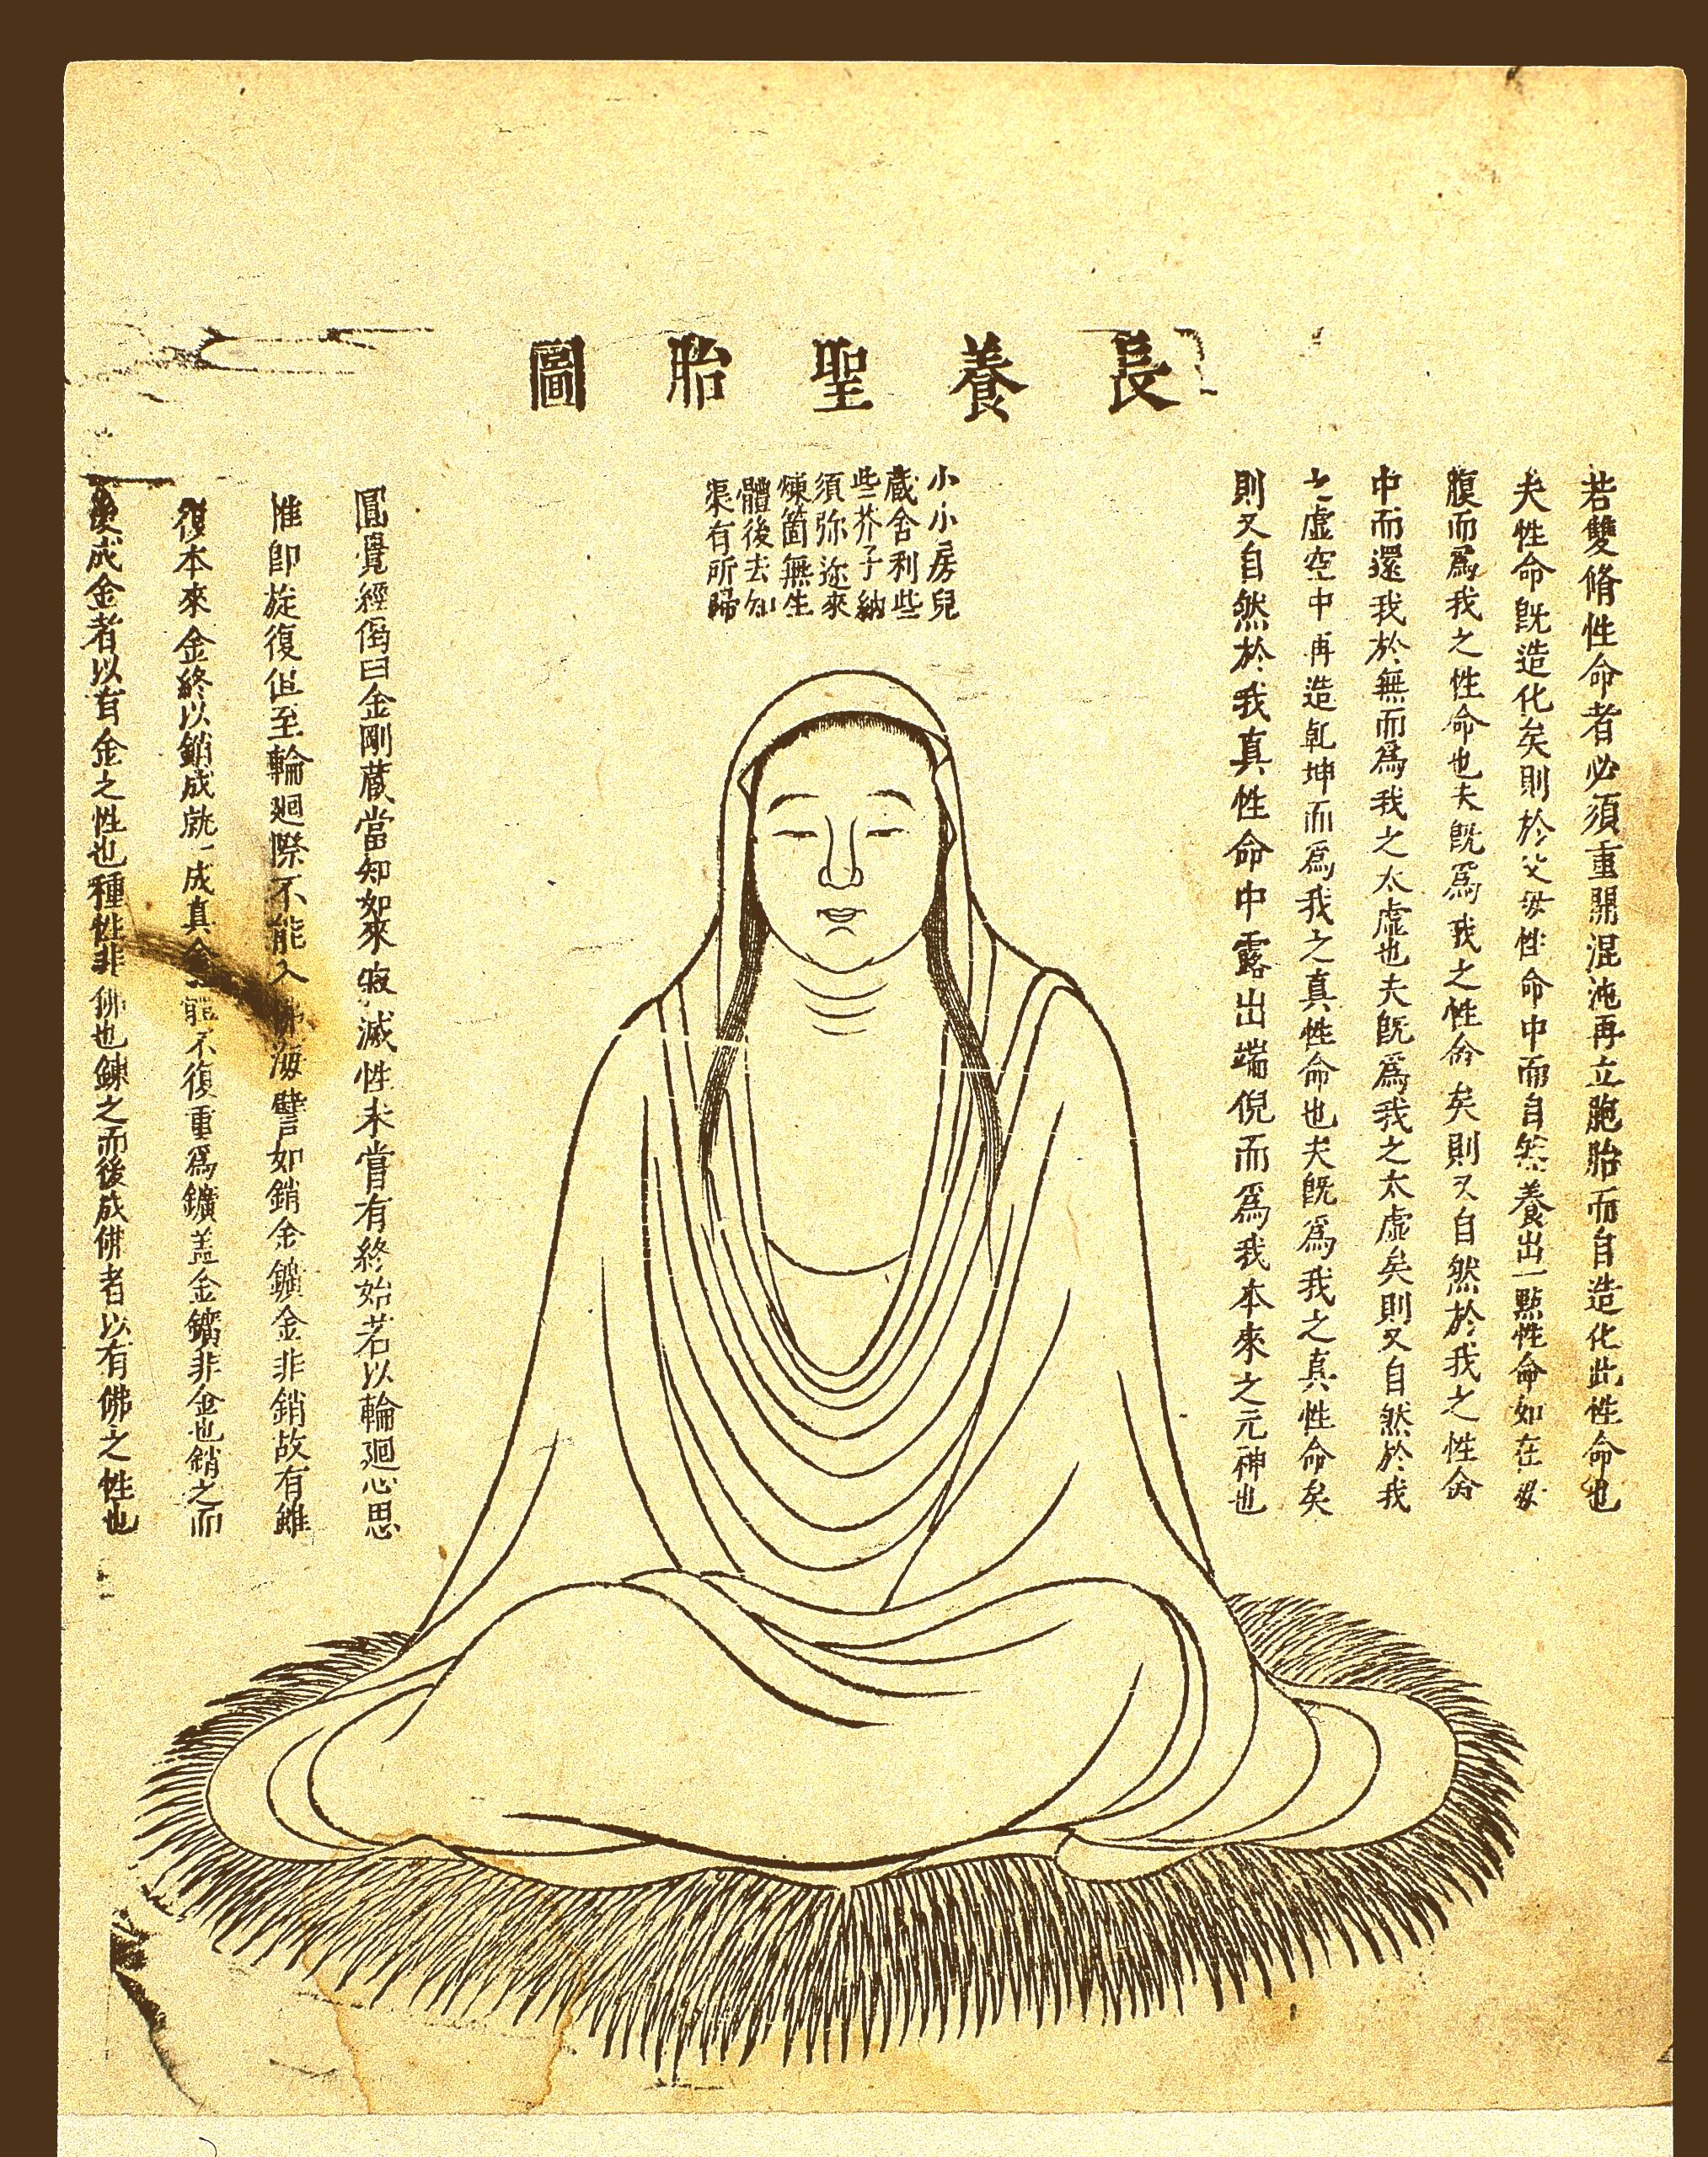 長養聖胎圖
若雙脩性命者必須重開混沌再立胞胎而自造化此性命也
夫性命既造化矣則於父母性命中而自然養出一點性命如在母
腹而爲我之性命也夫既爲我之性命矣則又自然於我之性命
中而還我於無而爲我之太虛也夫既爲我之太虛矣則又自然於我
之虛空中再造乾坤而爲我之真性命也夫既爲我之真性命矣
則又自然於我真性命中露出端倪而爲我本來之元神也
小小房兒
藏舍利些
些芥子納
須弥迩來
煉箇無生
體後去知
渠有所歸
圓覺經偈曰金剛藏當知如來寂滅性未嘗有終始若以輪廻心思
惟即旋復但至輪廻際不能入佛海譬如銷金鑛金非銷故有雖
復本來金終以銷成就一成真金 能不復重爲鑛盖金鑛非金也銷之而
後成金者以有金之性也種性非佛也鍊之而後成佛者以有佛之性也